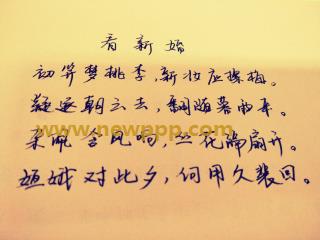 看新婚
初笄梦桃李，新妆应摽梅。
疑逐朝云去，翻随暮雨来。
www.newapp.com
杂佩含风响，丛花隔扇开。
姮娥对此夕，何用久裴回。